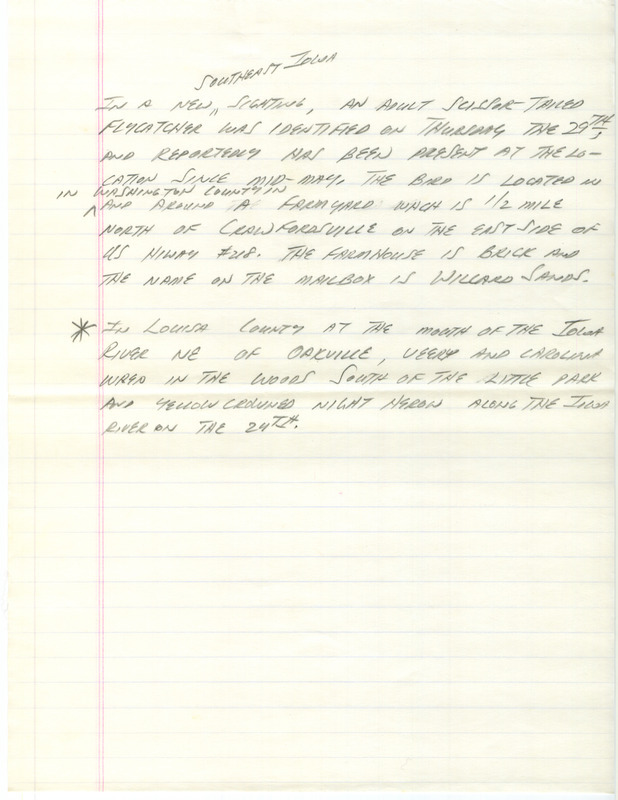 SOUTHEAST IOWA
IN A NEW " SIGHTING, AN ADULT SCISSOR-TAILED
FLYCATCHER WAS IDENTIFIED ON THURSDAY THE 29TH,
AND REPORTEDLY HAS BEEN PRESENT AT THE LO-
CATION SINCE MID-MAY. THE BIRD IS LOCATED IN
IN WASHINGTON COUNTY IN
^ AND AROUND A FARMYARD WHCH IS 1/2 MILE
NORTH OF CRAWFORDSVILLE ON THE EAST SIDE OF
US HIWAY #218. THE FARMHOUSE IS BRICK AND
THE NAME ON THE MAILBOX IS WILLARD SANDS.
* IN LOUISA COUNTY AT THE MOUTH OF THE IOWA
RIVER NE OF OAKVILLE, VEERY AND CAROLINA
WREN IN THE WOODS SOUTH OF THE LITTLE PARK
AND YELLOW CROWNED NIGHT HERON ALONG THE IOWA
RIVER ON THE 24TH.